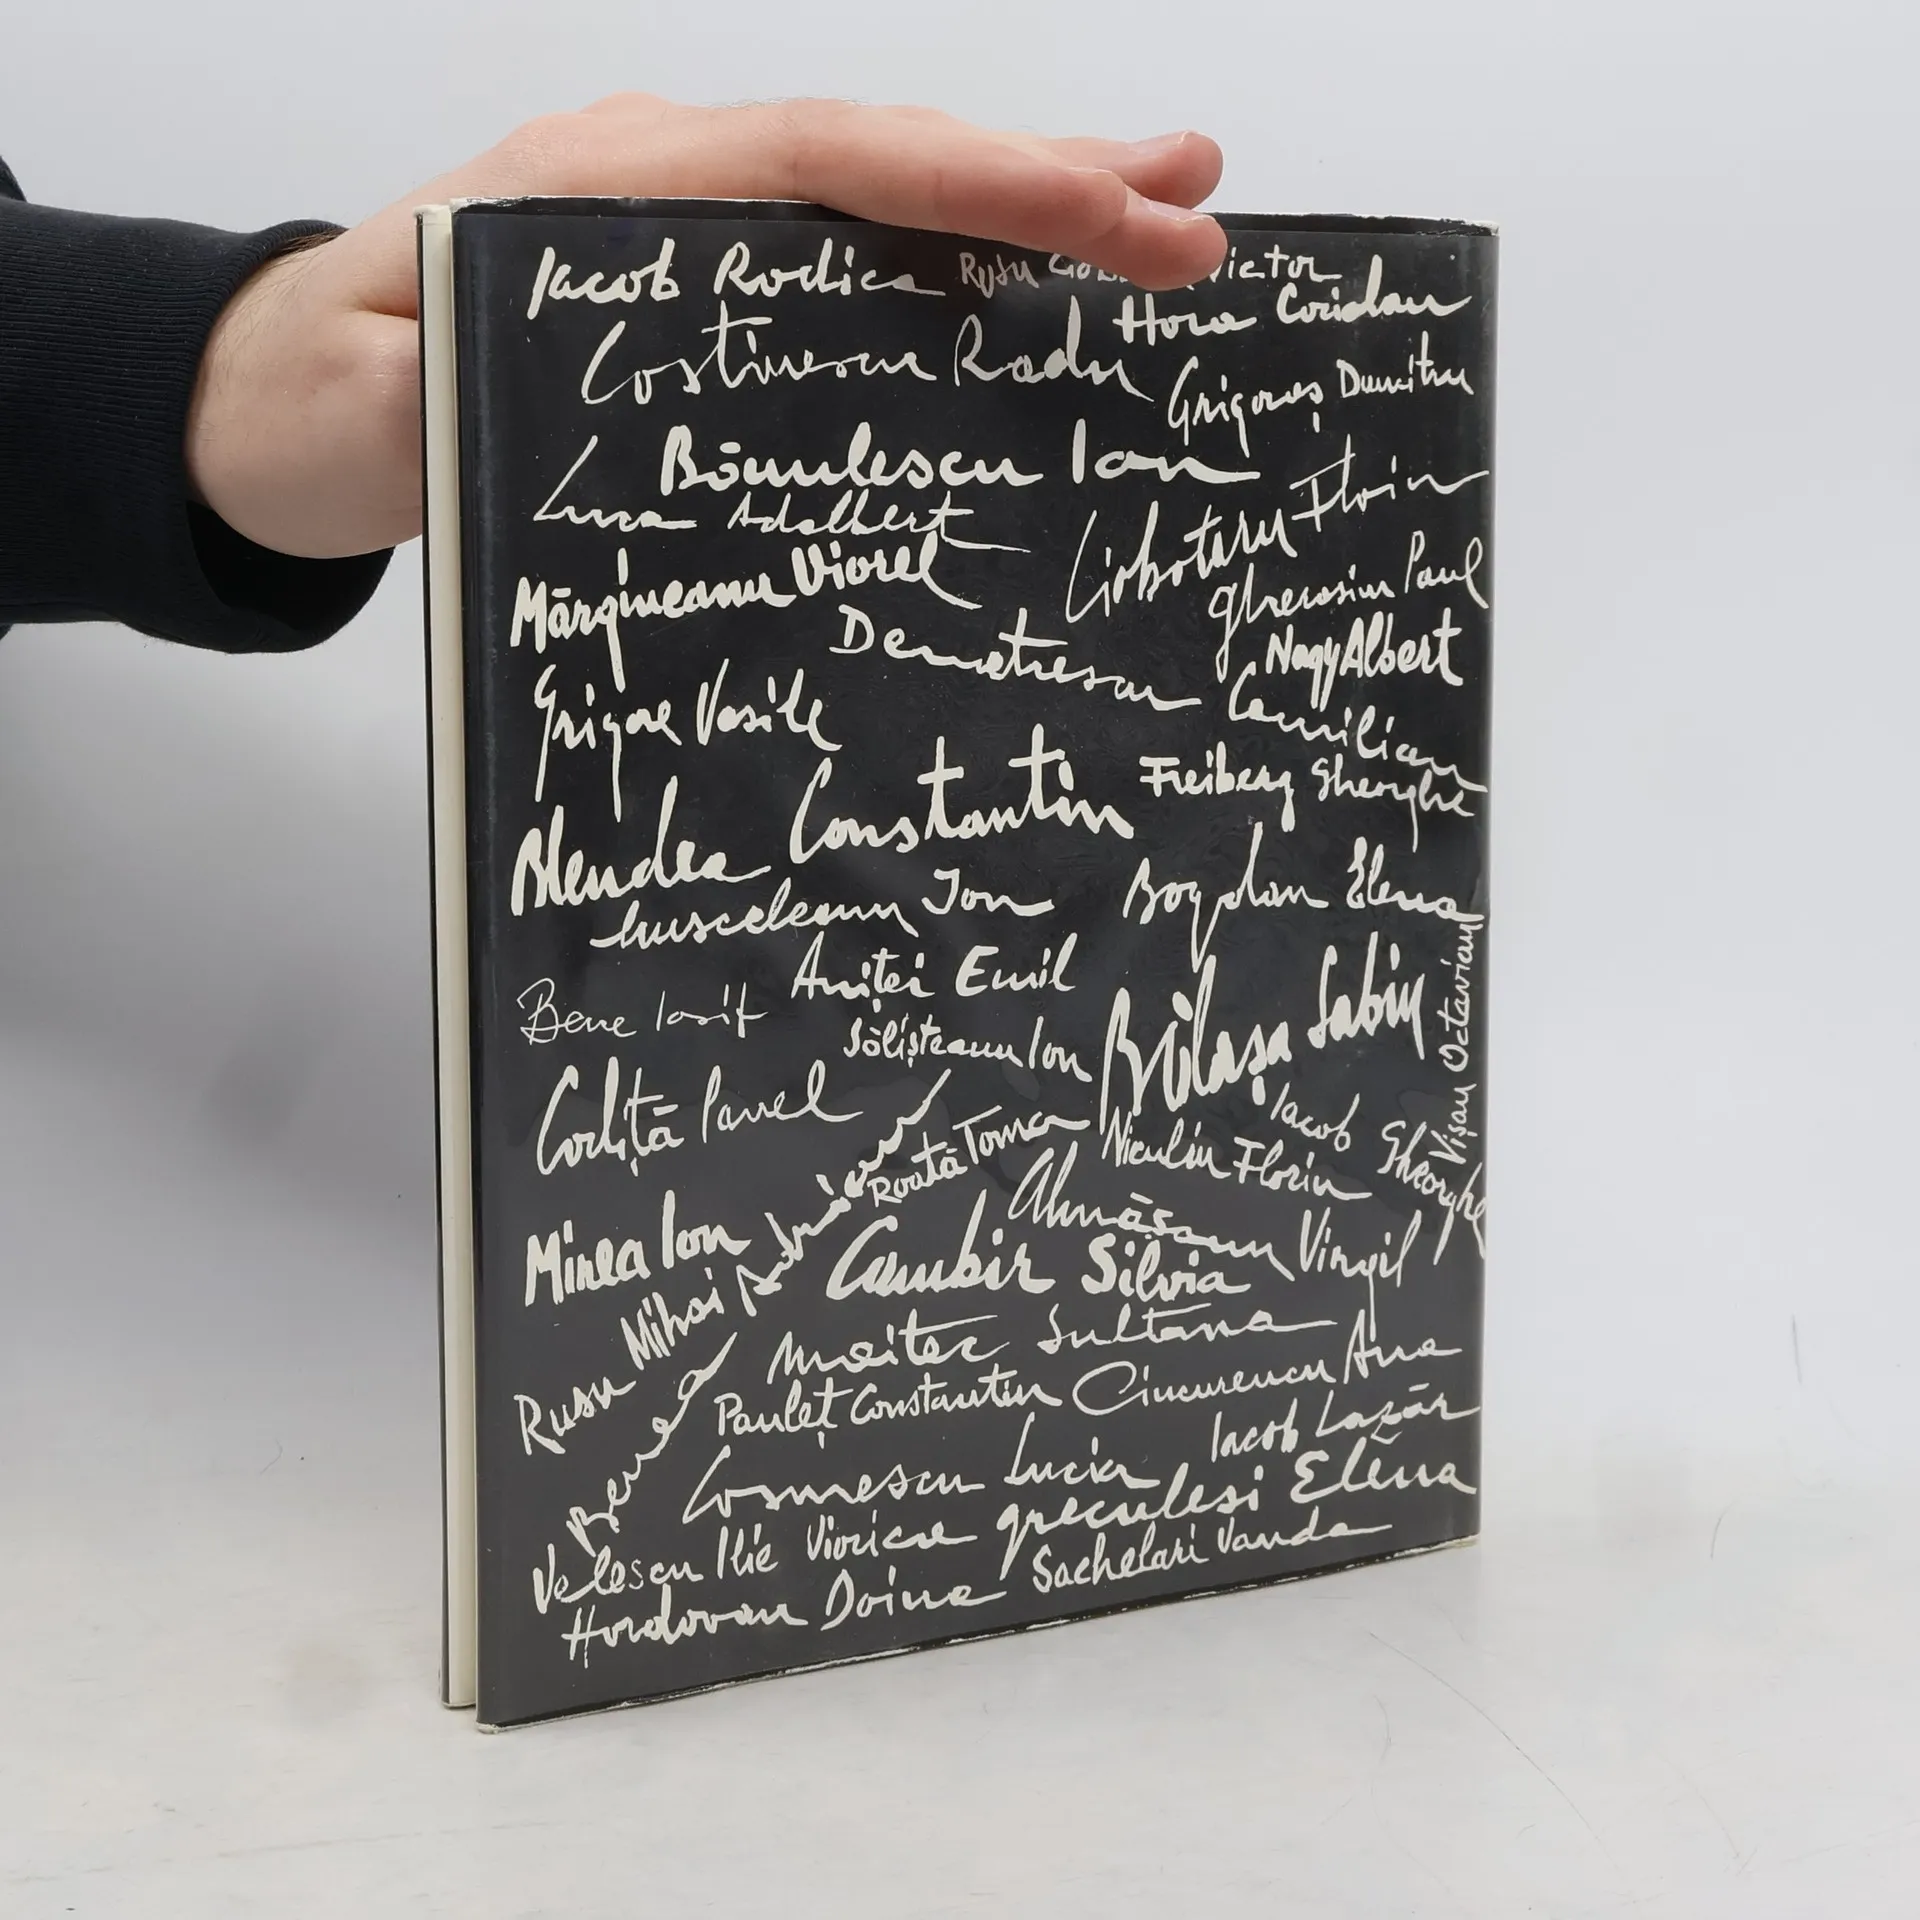 Iacob Rodica
Victor
Hora Coriolan
Costinescu Radu
Grigoraș Dumitru
Bănulescu Ion
Luca Adalbert
Ciobotaru Florin
Mărgineanu Viorel
Gherasim Paul
Demetrescu Camilian
Nagy Albert
Grigore Vasile
Freiberg Gheorghe
Blendea Constantin
Musceleanu Ion
Bogdan Elena
Aniței Emil
Bene Iosif
Sălișteanu Ion
Bălașa Sabin
Vișan Octavian
Codiță Pavel
Iacob Gheorghe
Roată Toma
Niculiu Florin
Almășanu Virgil
Mirea Ion
Cumbir Silvia
Rusu Mihai
Maitec Sultana
Pauleț Constantin
Ciucurencu Ana
Iacob Lazăr
Cosmescu Lucia
Greculesi Elena
Velescu Ilie
Viorica
Sachelari Vanda
Hordovan Doina